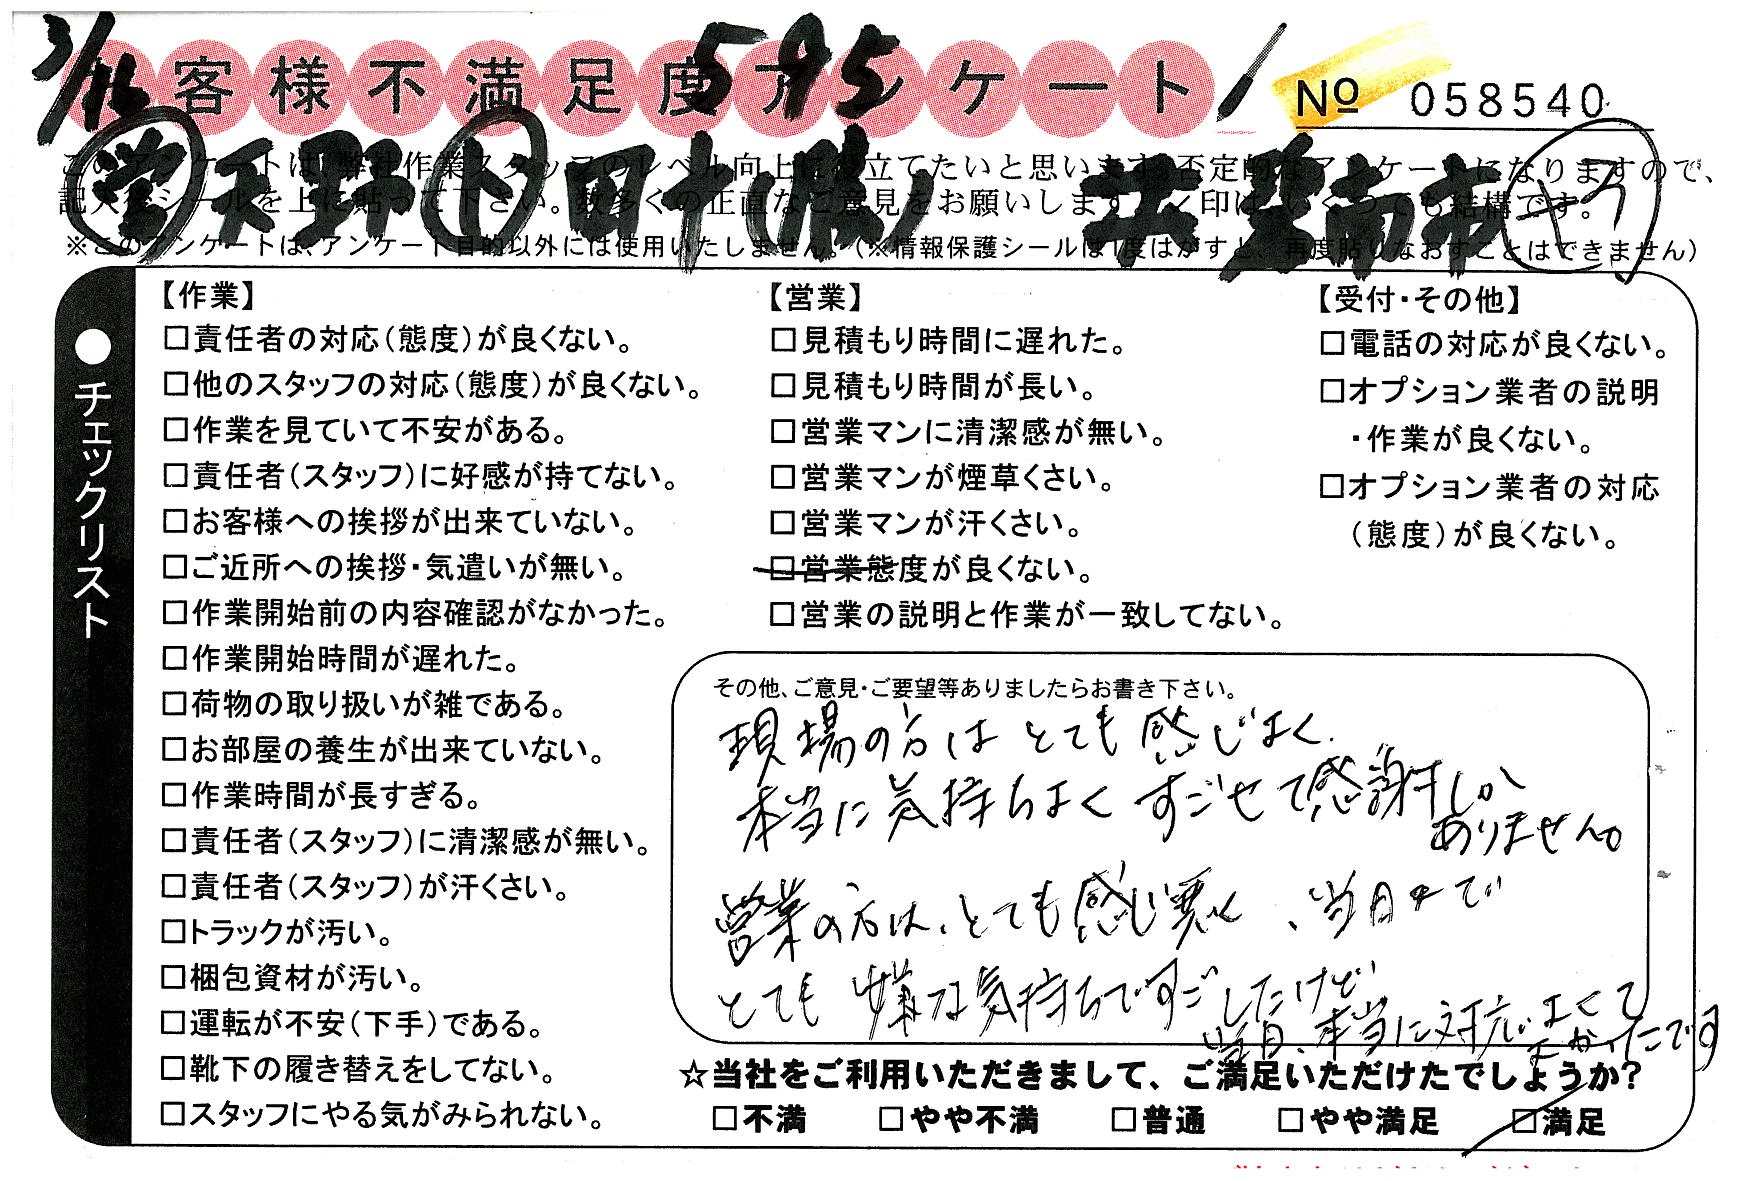 3/16
595
お客様不満足度アンケート
№ 058540
営 天野 ト 田中(勝) 愛知県碧南市
このアンケートは、弊社作業スタッフのレベル向上に役立てたいと思います。否定的なアンケートになりますので、
記入後シールを上に貼って下さい。数多くの正直なご意見をお願いします。✓印は、いくつでも結構です。
※このアンケートは、アンケート目的以外には使用いたしません。(※情報保護シールは1度はがすと、再度貼りなおすことはできません)
●チェックリスト
【作業】
□責任者の対応(態度)が良くない。
□他のスタッフの対応(態度)が良くない。
□作業を見ていて不安がある。
□責任者(スタッフ)に好感が持てない。
□お客様への挨拶が出来ていない。
□ご近所への挨拶・気遣いが無い。
□作業開始前の内容確認がなかった。
□作業開始時間が遅れた。
□荷物の取り扱いが雑である。
□お部屋の養生が出来ていない。
□作業時間が長すぎる。
□責任者(スタッフ)に清潔感が無い。
□責任者(スタッフ)が汗くさい。
□トラックが汚い。
□梱包資材が汚い。
□運転が不安(下手)である。
□靴下の履き替えをしてない。
□スタッフにやる気がみられない。
【営業】
□見積もり時間に遅れた。
□見積もり時間が長い。
□営業マンに清潔感が無い。
□営業マンが煙草くさい。
□営業マンが汗くさい。
□営業態度が良くない。
□営業の説明と作業が一致してない。
【受付・その他】
□電話の対応が良くない。
□オプション業者の説明
・作業が良くない。
□オプション業者の対応
(態度)が良くない。
その他、ご意見・ご要望等ありましたらお書き下さい。
現場の方はとても感じよく、
本当に気持ちよくすごせて感謝しか
ありません。
営業の方は、とても感じ悪く、当日まで
とても嫌な気持ちですごしたけど
当日、本当に対応よくて
よかったです
☆当社をご利用いただきまして、ご満足いただけたでしょうか?
□不満 □やや不満 □普通 □やや満足 □満足